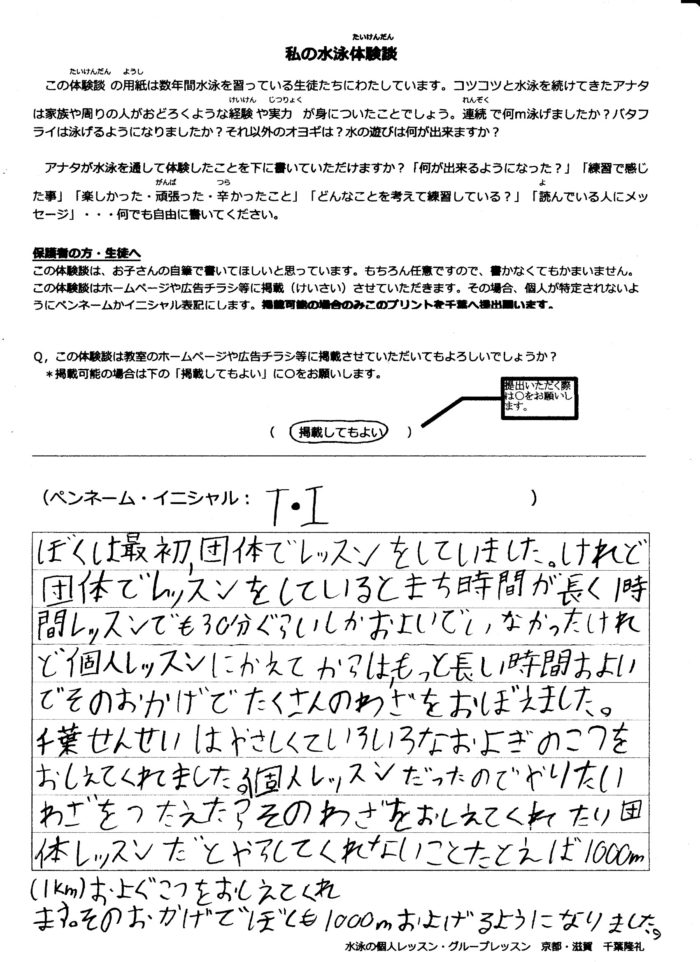 たいけんだん
私の水泳体験談
たいけんだん ようし
この体験談 の用紙は数年間水泳を習っている生徒たちにわたしています。コツコツと水泳を続けてきたアナタ
けいけん じつりょく れんぞく
は家族や周りの人がおどろくような経験や実力 が身についたことでしょう。連続で何m泳げましたか？バタフ
ライは泳げるようになりましたか？それ以外のオヨギは？水の遊びは何が出来ますか？
アナタが水泳を通して体験したことを下に書いていただけますか？「何が出来るようになった？」「練習で感じ
がんば つら よ
た事」「楽しかった・頑張った・辛かったこと」「どんなことを考えて練習している？」「読んでいる人にメッ
セージ」・・・何でも自由に書いてください。
保護者の方・生徒へ
この体験談は、お子さんの自筆で書いてほしいと思っています。もちろん任意ですので、書かなくてもかまいません。
この体験談はホームページや広告チラシ等に掲載（けいさい）させていただきます。その場合、個人が特定されないよ
うにペンネームかイニシャル表記にします。掲載可能の場合のみこのプリントを千葉へ提出願います。
Q，この体験談は教室のホームページや広告チラシ等に掲載させていただいてもよろしいでしょうか？
＊掲載可能の場合は下の「掲載してもよい」に〇をお願いします。
提出いただく際
は〇をお願いし
ます。
（ 掲載してもよい ）
（ペンネーム・イニシャル： T・I ）
ぼくは最初,団体でレッスンをしていました。けれど
団体でレッスンをしているとまち時間が長く1時
間レッスンでも30分ぐらいしかおよいでいなかったけれ
ど個人レッスンにかえてからは,もっと長い時間およい
でそのおかげでたくさんのわざをおぼえました。
千葉せんせいはやさしくていろいろなおよぎのこつを
おしえてくれてました。個人レッスンだったのでやりたい
わざをつたえたらそのわざをおしえてくれたり団
体レッスンだとやらしてくれないことたとえば1000m
(1km)およぐこつをおしえてくれ
ます。そのおかげでぼくも1000mおよげるようになりました。
水泳の個人レッスン・グループレッスン 京都・滋賀 千葉隆礼